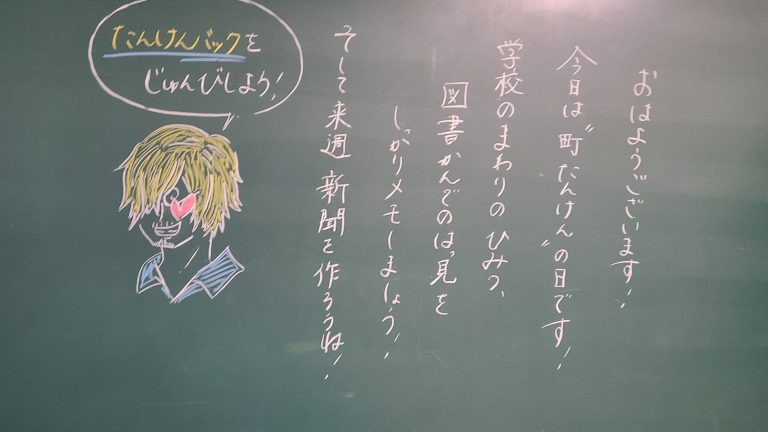 おはようございます!
今日は"町たんけん"の日です!
学校のまわりのひみつ、
図書かんでのはっ見を
しっかりメモしましょう!
そして来週 新聞を作ろうね!
たんけんバックを
じゅんびしよう!